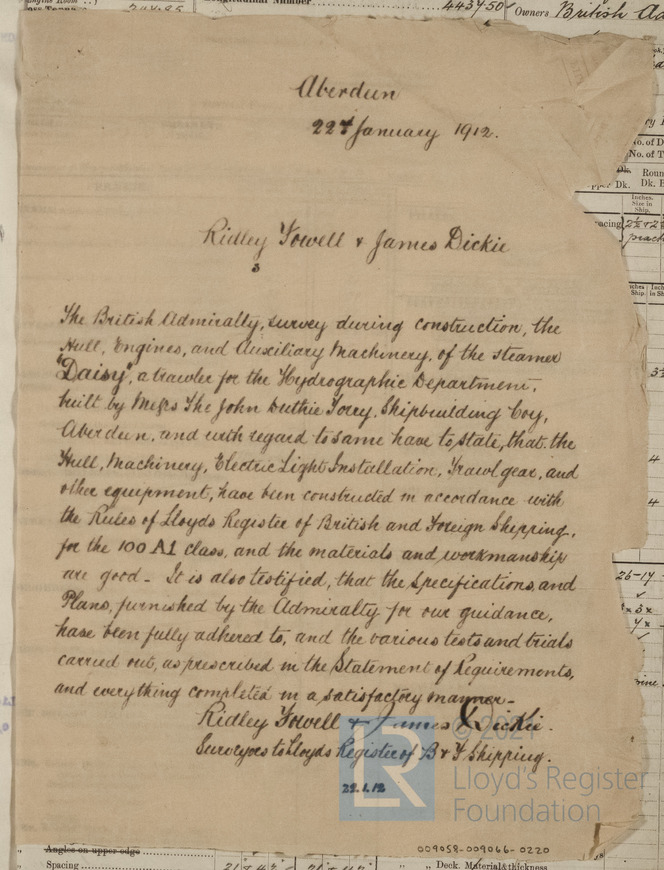 Longitudinal Number 443450 Owners British Ad
Aberdeen
22nd January 1912.
Ridley Towell & James Dickie
3
The British Admiralty, survey during construction, the
Hull, Engines, and Auxiliary Machinery, of the steamer
"Daisy", a trawler for the Hydrographic Department,
built by Messrs The John Duthie Torry, Shipbuilding Coy,
Aberdeen, and with regard to same have to state, that the
Hull, Machinery, Electric Light Installation, Trawl gear, and
other equipment, have been constructed in accordance with
the Rules of Lloyds Register of British and Foreign Shipping,
for the 100 A1 class, and the materials and workmanship
are good - It is also testified, that the Specifications, and
Plans, furnished by the Admiralty for our guidance,
have been fully adhered to, and the various tests and trials
carried out, as prescribed in the Statement of Requirements,
and everything completed in a satisfactory manner -
Ridley Towell & James Dickie.
Surveyors to Lloyds Register of B & F Shipping.
22.1.12
LR
Lloyd's Register
Foundation
009058-009066-0220
Angles on upper edge
Spacing
" " Deck. Material & thickness